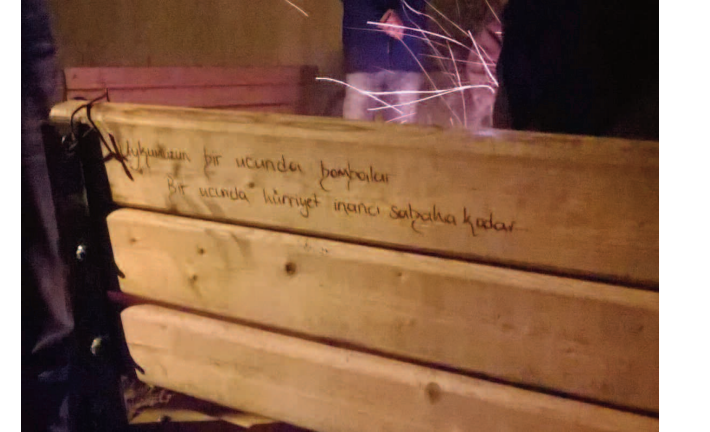 Uykumuzun bir ucunda bombalar
Bir ucunda hürriyet inancı sabaha kadar